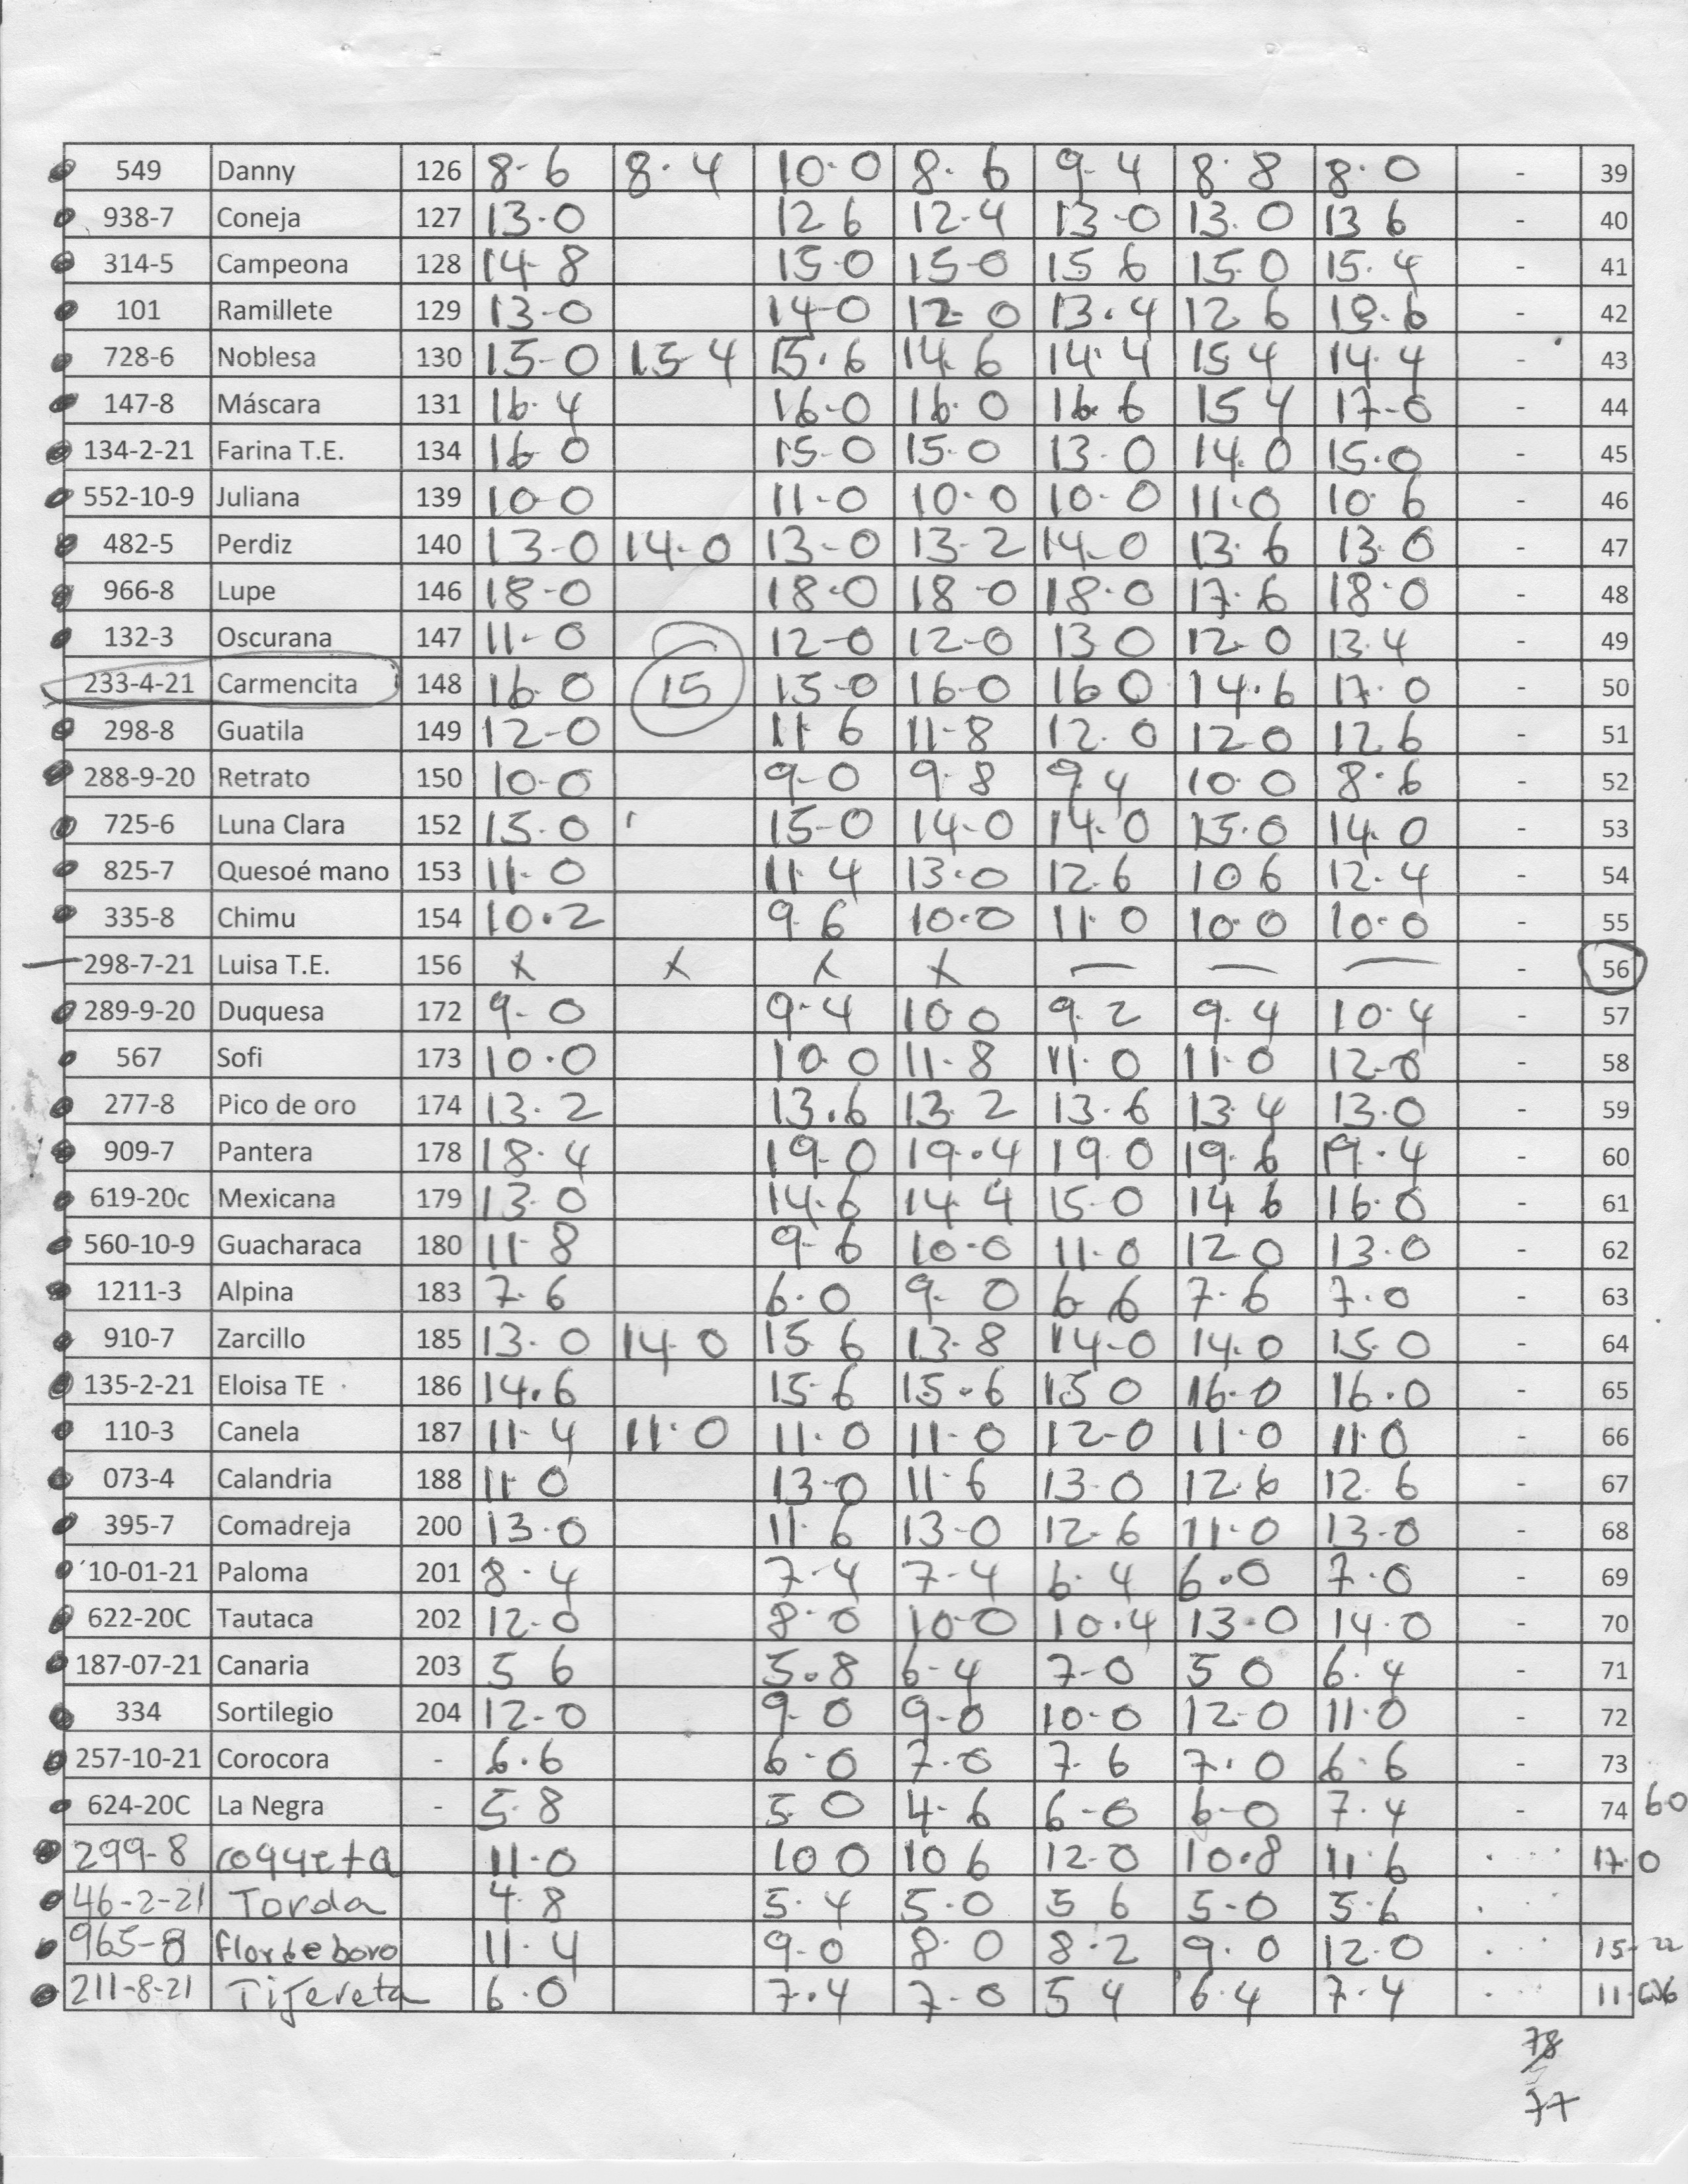 549 Danny 126 8-6 8.4 10-0 8-6 9-4 8.8 8.0 - 39
938-7 Coneja 127 13-0 12 6 12-4 13-0 13.0 13 6 - 40
314-5 Campeona 128 14-8 15-0 15-0 15 6 15.0 15.4 - 41
101 Ramillete 129 13-0 14-0 12-0 13.4 12 6 - 42
728-6 Noblesa 130 15-0 15-4 15.6 14.6 14.4 15 4 14.4 - 43
147-8 Máscara 131 16.4 16-0 16.0 16.6 15 4 17-0 - 44
134-2-21 Farina T.E. 134 16 0 15-0 15.0 13-0 14.0 15.0 - 45
552-10-9 Juliana 139 10-0 11-0 10.0 10-0 11.0 10.6 - 46
482-5 Perdiz 140 13-0 14-0 13-0 13-2 14-0 13.6 13.0 - 47
966-8 Lupe 146 18-0 18-0 18-0 18.0 17.6 18.0 - 48
132-3 Oscurana 147 11-0 12-0 12-0 13 0 12-0 13.4 - 49
233-4-21 Carmencita 148 16-0 15 15-0 16-0 16 0 14.6 17.0 - 50
298-8 Guatila 149 12-0 11 6 11-8 12.0 12 0 12 6 - 51
288-9-20 Retrato 150 10-0 9-0 9.8 9.4 10.0 8.6 - 52
725-6 Luna Clara 152 15.0 15-0 14-0 14.0 15.0 14.0 - 53
825-7 Quesoé mano 153 11.0 11.4 13.0 12.6 10 6 12.4 - 54
335-8 Chimu 154 10.2 9.6 10.0 11.0 10.0 10.0 - 55
298-7-21 Luisa T.E. 156 x x x x — — — - 56
289-9-20 Duquesa 172 9-0 9.4 10 0 9.2 9.4 10.4 - 57
567 Sofi 173 10.0 10.0 11.8 11.0 11.0 12-0 - 58
277-8 Pico de oro 174 13.2 13.6 13.2 13.6 13.4 13.0 - 59
909-7 Pantera 178 18.4 19-0 19.4 19 0 19.6 19.4 - 60
619-20c Mexicana 179 13.0 14.6 14.4 15-0 14 6 16.0 - 61
560-10-9 Guacharaca 180 11.8 9-6 10.0 11.0 12 0 13.0 - 62
1211-3 Alpina 183 7.6 6.0 9-0 6-6 7.6 7.0 - 63
910-7 Zarcillo 185 13.0 14.0 15 6 13.8 14-0 14.0 15.0 - 64
135-2-21 Eloisa TE 186 14.6 15-6 15.6 15 0 16-0 16.0 - 65
110-3 Canela 187 11.4 11.0 11.0 11-0 12-0 11.0 11.0 - 66
073-4 Calandria 188 11.0 13-0 11.6 13.0 12.6 12.6 - 67
395-7 Comadreja 200 13.0 11.6 13-0 12-6 11.0 13-0 - 68
'10-01-21 Paloma 201 8.4 7-4 7-4 6.4 6.0 7.0 - 69
622-20C Tautaca 202 12.0 8.0 10-0 10.4 13.0 14.0 - 70
187-07-21 Canaria 203 5 6 5.8 6-4 7-0 5 0 6.4 - 71
334 Sortilegio 204 12-0 9-0 9-0 10-0 12-0 11.0 - 72
257-10-21 Corocora - 6.6 6-0 7.0 7.6 7.0 6.6 - 73
624-20C La Negra - 5.8 5.0 4-6 6-0 6-0 7.4 - 74 60
299-8 coqueta 11.0 10 0 10 6 12-0 10.8 11.6 17.0
46-2-21 Torda 4.8 5.4 5.0 5 6 5-0 5.6
965-8 flordeboro 11.4 9-0 8.0 8.2 9.0 12.0 15-22
211-8-21 Tijereta 6.0 7.4 7-0 5 4 6.4 7.4
78
77